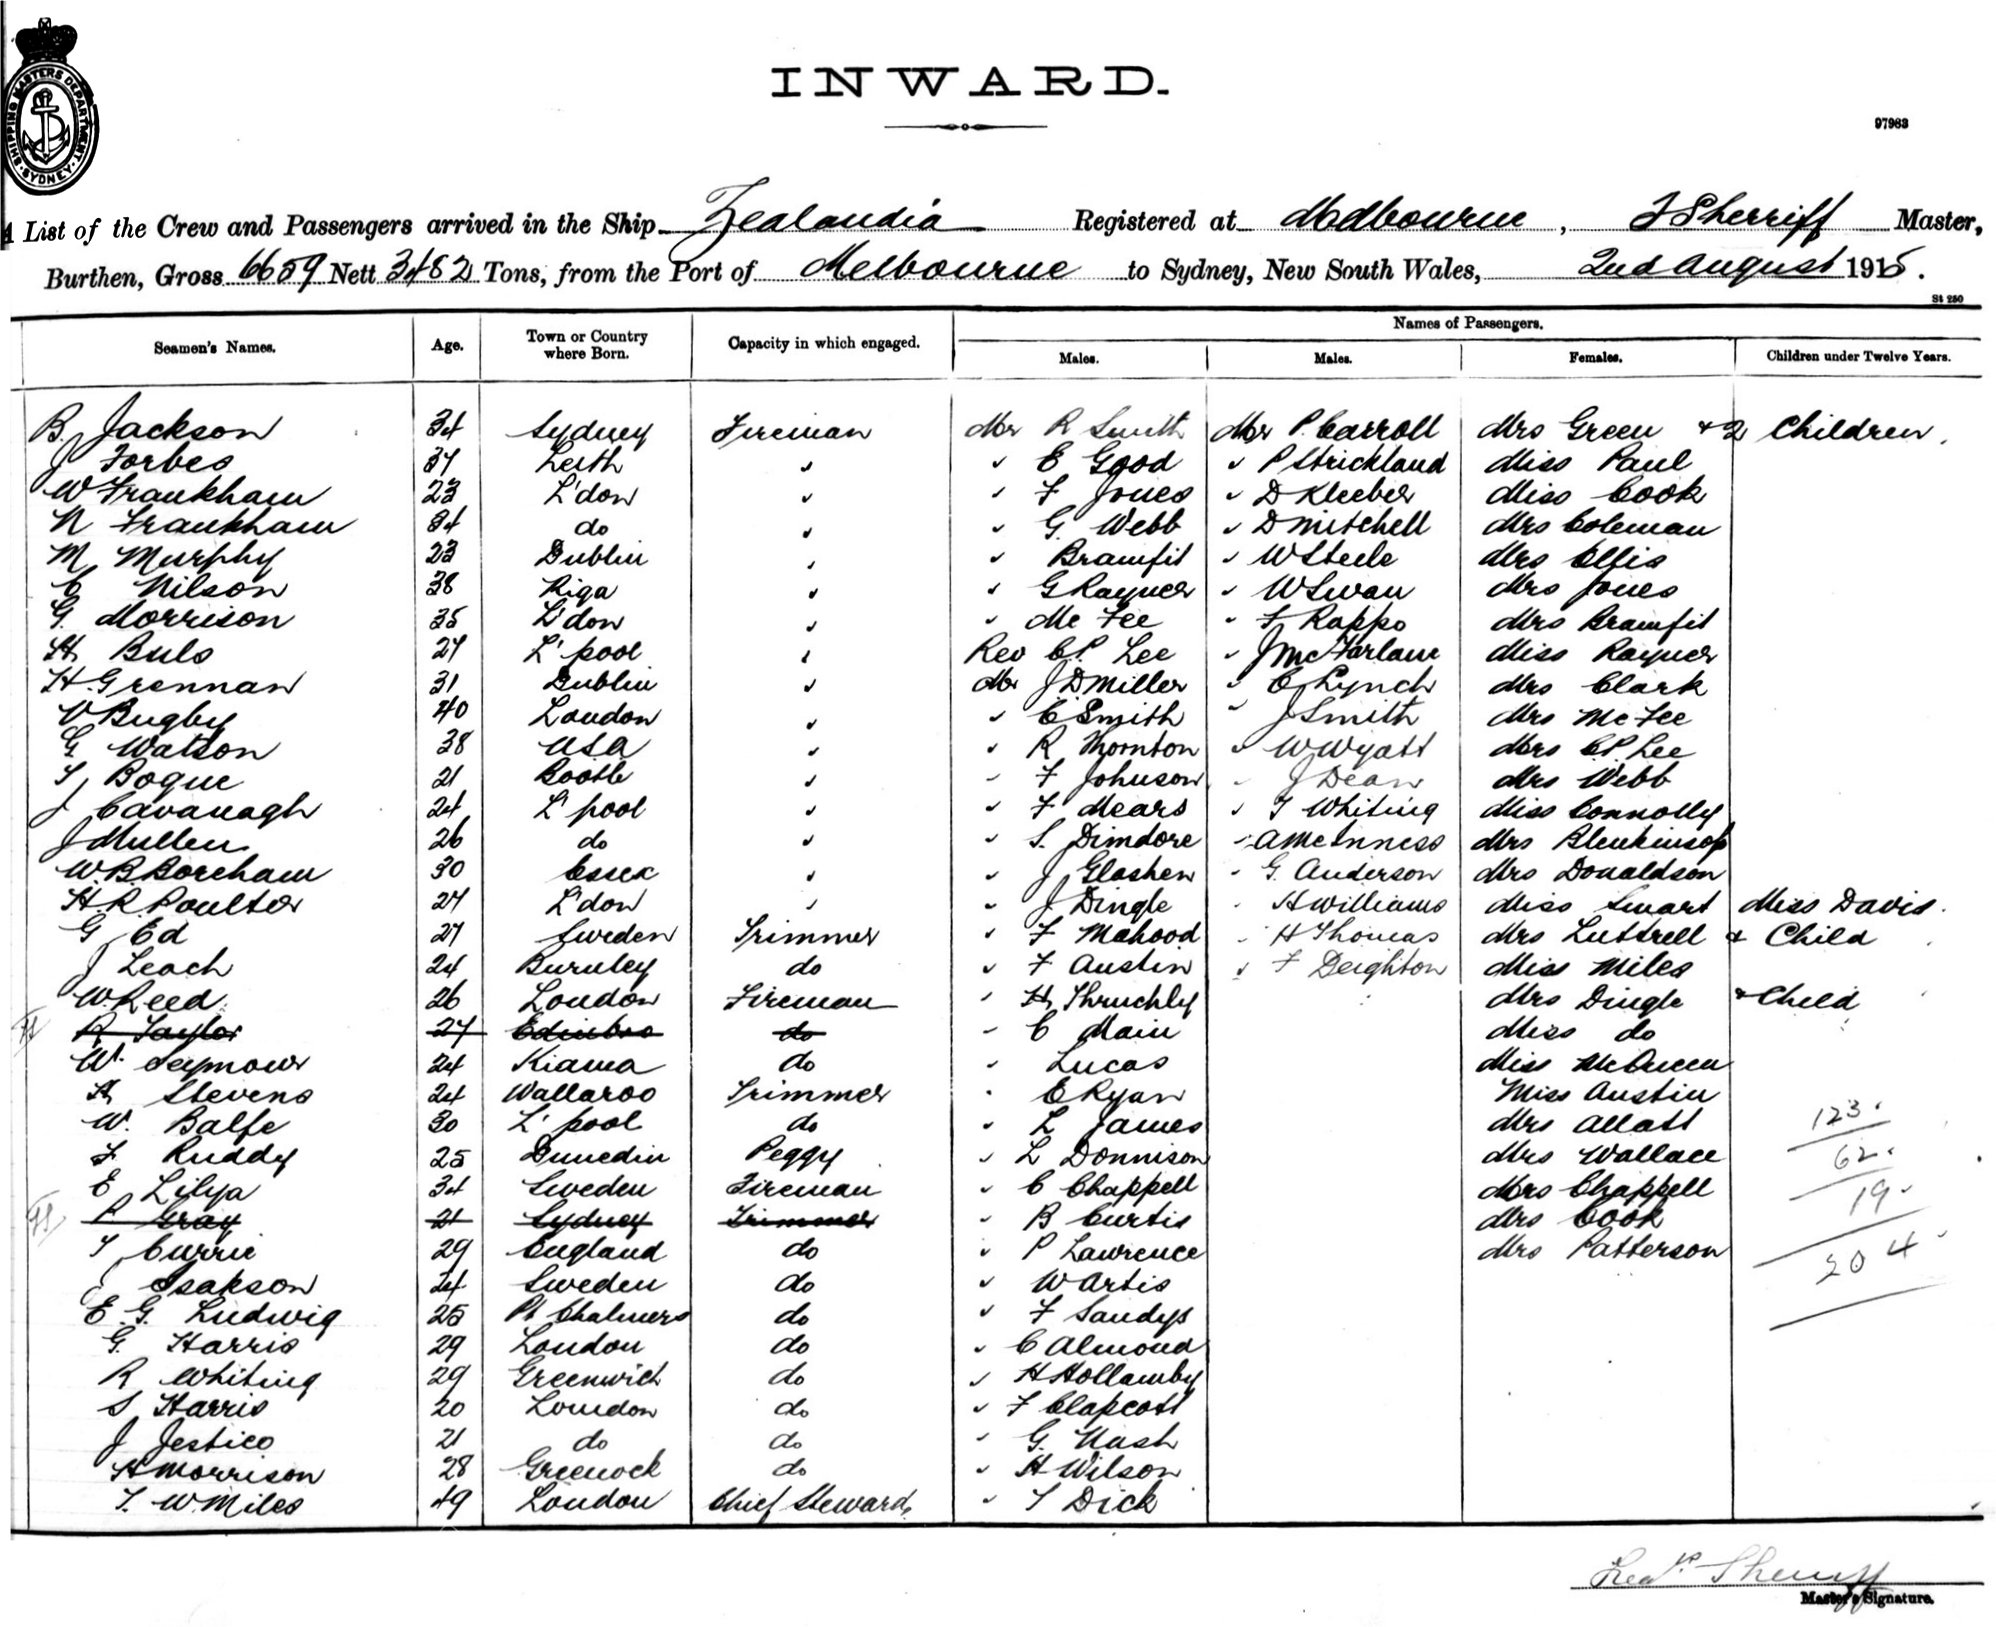 SHIPPING MASTERS DEPARTMENT · SYDNEY ·
INWARD.
97983
A List of the Crew and Passengers arrived in the Ship Zealandia Registered at Melbourne, J Sherriff Master,
Burthen, Gross 6659 Nett 3482 Tons, from the Port of Melbourne to Sydney, New South Wales, 2nd August 1915.
St 250
Names of Passengers.
Seamen's Names. Age. Town or Country where Born. Capacity in which engaged. Males. Males. Females. Children under Twelve Years.
B. Jackson 34 Sydney Fireman Mr R Smith Mr P. Carroll Mrs Green + 2 Children
J Forbes 37 Leith " " E Good " P Strickland Miss Paul
W Frankham 23 L'don " " F Jones " D Kleeber Miss Cook
N Frankham 34 do " " G. Webb " D Mitchell Mrs Coleman
M Murphy 23 Dublin " " Bramfit " W Steele Mrs Ellis
C Nilson 38 Riga " " G Rayner " W Swan Mrs Jones
G. Morrison 35 L'don " " Mc Fee " F Rappo Mrs Bramfit
H Buls 27 L'pool " Rev C.P. Lee " J McFarlane Miss Rayner
H. Grennan 31 Dublin " Mr J D Miller " C Lynch Mrs Clark
V Bugby 40 London " " C Smith " J Smith Mrs Mc Fee
G Watson 38 USA " " R Thornton " W Wyatt Mrs C.P. Lee
T Bogue 21 Bootle " " F Johnson " J Dean Mrs Webb
J Cavanagh 24 L'pool " " F Mears " T Whiting Miss Connolly
J Mullen 26 do " " S. Dimdore " A McInness Mrs Blenkinsop
W.B. Boreham 30 Essex " " J Gloshen " G. Anderson Mrs Donaldson
H.R. Poulter 27 L'don " " J. Dingle " H Williams Miss Smart Miss Davis.
G Ed 27 Sweden Trimmer " F Mahood " H Thomas Mrs Luttrell + Child
J Leach 24 Burnley do " F Austin " F Deighton Miss Miles
W Reed 26 London Fireman " H Thruchly Mrs Dingle + Child
R Taylor 27 Edinbro do " C Main Miss do
W. Seymour 24 Kiama do " Lucas Miss McQueen
H Stevens 24 Wallaroo Trimmer " E Ryan Miss Austin
W. Balfe 30 L'pool do " L James Mrs Allatt 123
F Ruddy 25 Dunedin Peggy " L Donnison Mrs Wallace 62
E Lilja 34 Sweden Fireman " C Chappell Mrs Chappell 19
P Gray 21 Sydney Trimmer " B Curtis Mrs Cook
T Currie 29 England do " P Lawrence Mrs Patterson 204
E Isakson 24 Sweden do " W Artis
E.G. Ludwig 25 Pt Chalmers do " F Sandys
G. Harris 29 London do " C Almond
R Whiting 29 Greenwich do " H Hollamby
S Harris 20 London do " F Clapcott
J Jestico 21 do do " G. Nash
H Morrison 28 Greenock do " H Wilson
T. W Miles 49 London Chief Steward " T Dick
Fred. Sherriff
Master's Signature.